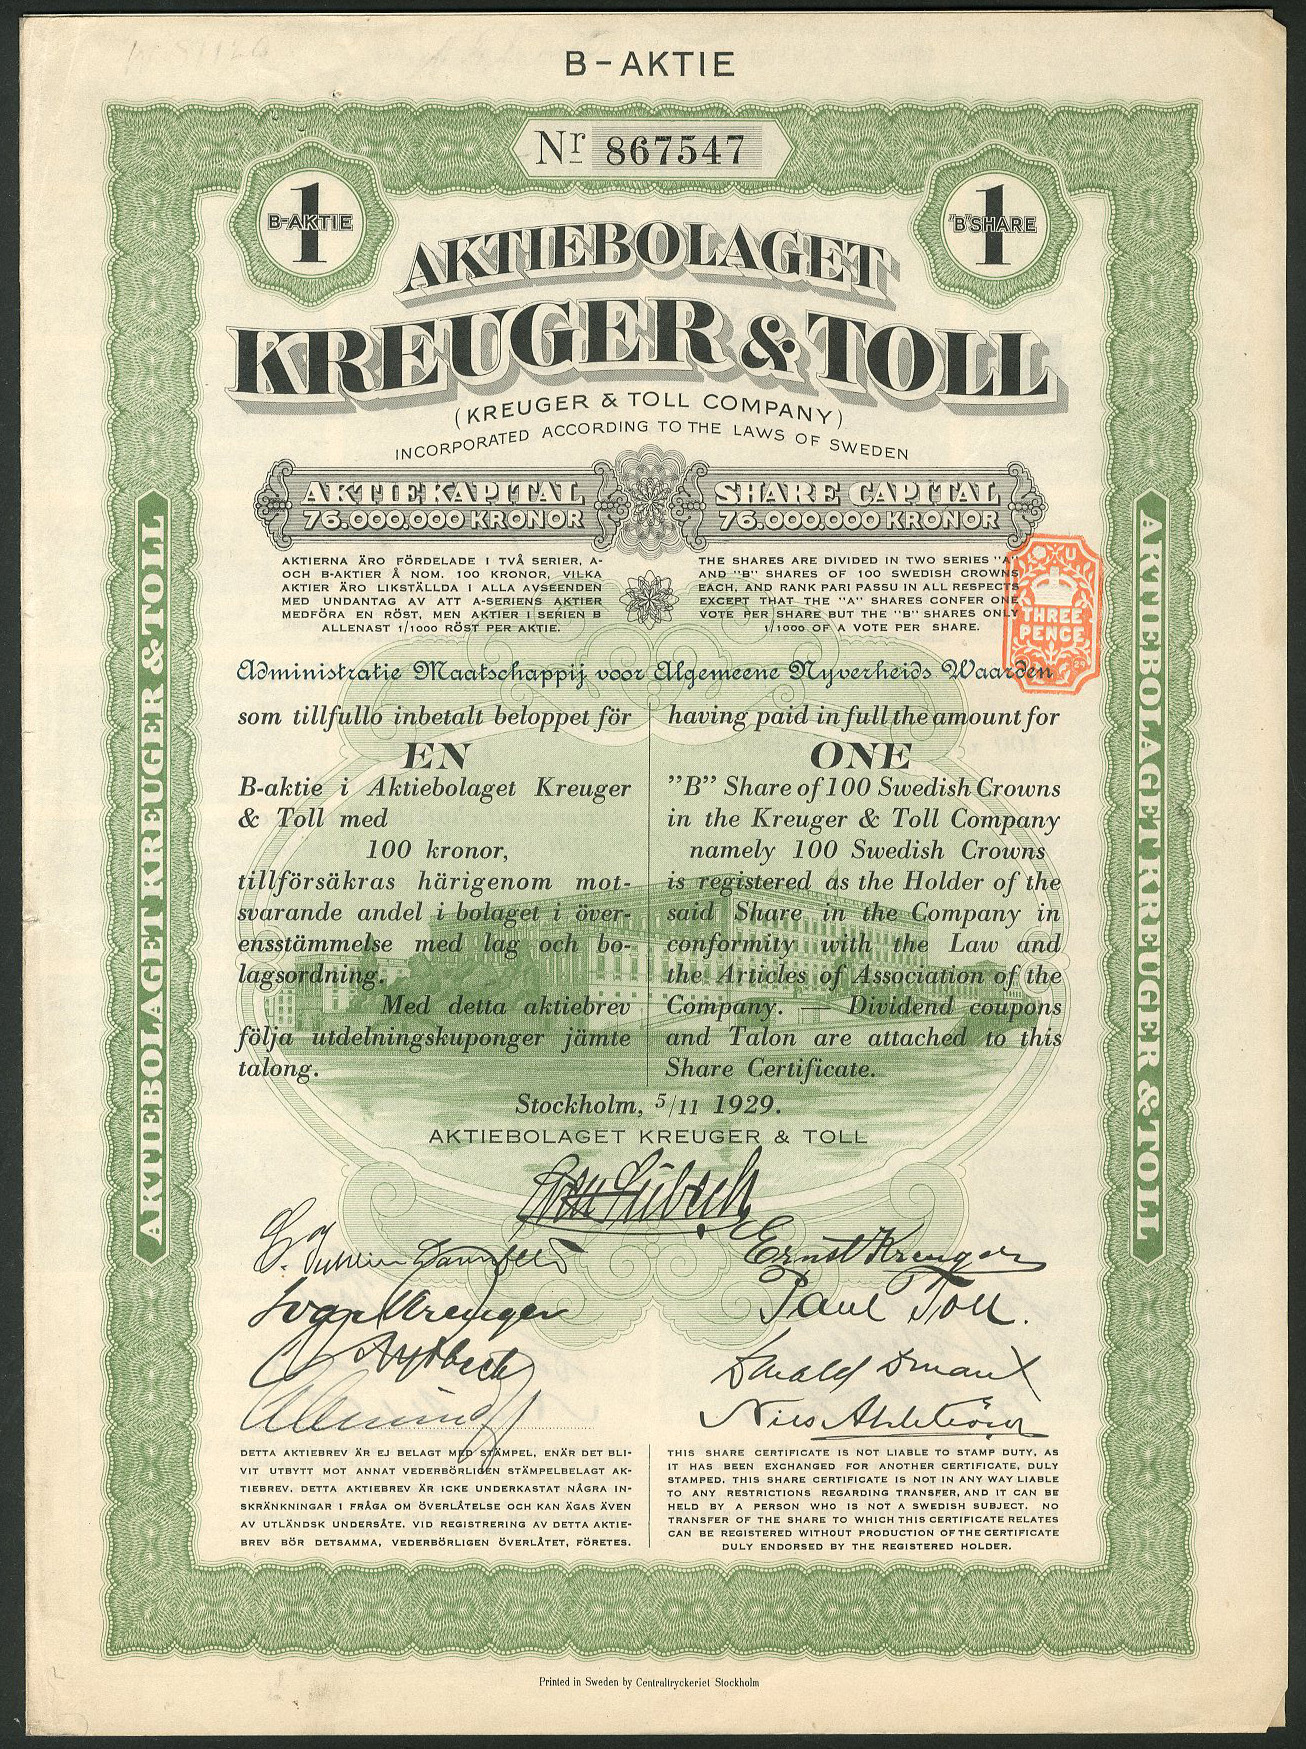 B-AKTIE
Nr 867547
1
B-AKTIE
1
"B" SHARE
AKTIEBOLAGET
KREUGER & TOLL
(KREUGER & TOLL COMPANY)
INCORPORATED ACCORDING TO THE LAWS OF SWEDEN
AKTIEKAPITAL
76.000.000 KRONOR
SHARE CAPITAL
76.000.000 KRONOR
AKTIERNA ÄRO FÖRDELADE I TVÅ SERIER, A-
OCH B-AKTIER Å NOM. 100 KRONOR, VILKA
AKTIER ÄRO LIKSTÄLLDA I ALLA AVSEENDEN
MED UNDANTAG AV ATT A-SERIENS AKTIER
MEDFÖRA EN RÖST, MEN AKTIER I SERIEN B
ALLENAST 1/1000 RÖST PER AKTIE.
THE SHARES ARE DIVIDED IN TWO SERIES "A"
AND "B" SHARES OF 100 SWEDISH CROWNS
EACH, AND RANK PARI PASSU IN ALL RESPECTS
EXCEPT THAT THE "A" SHARES CONFER ONE
VOTE PER SHARE BUT THE "B" SHARES ONLY
1/1000 OF A VOTE PER SHARE.
THREE
PENCE
Administratie Maatschappij voor Algemeene Nyverheids Waarden
som tillfullo inbetalt beloppet för
EN
B-aktie i Aktiebolaget Kreuger
& Toll med
100 kronor,
tillförsäkras härigenom mot-
svarande andel i bolaget i över-
ensstämmelse med lag och bo-
lagsordning.
Med detta aktiebrev
följa utdelningskuponger jämte
talong.
having paid in full the amount for
ONE
"B" Share of 100 Swedish Crowns
in the Kreuger & Toll Company
namely 100 Swedish Crowns
is registered as the Holder of the
said Share in the Company in
conformity with the Law and
the Articles of Association of the
Company. — Dividend coupons
and Talon are attached to this
Share Certificate.
Stockholm, 5/11 1929.
AKTIEBOLAGET KREUGER & TOLL
Ernst Kreuger
Ivar Kreuger
Paul Toll.
Nils Ahlström
DETTA AKTIEBREV ÄR EJ BELAGT MED STÄMPEL, ENÄR DET BLI-
VIT UTBYTT MOT ANNAT VEDERBÖRLIGEN STÄMPELBELAGT AK-
TIEBREV. DETTA AKTIEBREV ÄR ICKE UNDERKASTAT NÅGRA IN-
SKRÄNKNINGAR I FRÅGA OM ÖVERLÅTELSE OCH KAN ÄGAS ÄVEN
AV UTLÄNDSK UNDERSÅTE. VID REGISTRERING AV DETTA AKTIE-
BREV BÖR DETSAMMA, VEDERBÖRLIGEN ÖVERLÅTET, FÖRETES.
THIS SHARE CERTIFICATE IS NOT LIABLE TO STAMP DUTY, AS
IT HAS BEEN EXCHANGED FOR ANOTHER CERTIFICATE, DULY
STAMPED. THIS SHARE CERTIFICATE IS NOT IN ANY WAY LIABLE
TO ANY RESTRICTIONS REGARDING TRANSFER, AND IT CAN BE
HELD BY A PERSON WHO IS NOT A SWEDISH SUBJECT. NO
TRANSFER OF THE SHARE TO WHICH THIS CERTIFICATE RELATES
CAN BE REGISTERED WITHOUT PRODUCTION OF THE CERTIFICATE
DULY ENDORSED BY THE REGISTERED HOLDER.
AKTIEBOLAGET KREUGER & TOLL
AKTIEBOLAGET KREUGER & TOLL
Printed in Sweden by Centraltryckeriet Stockholm